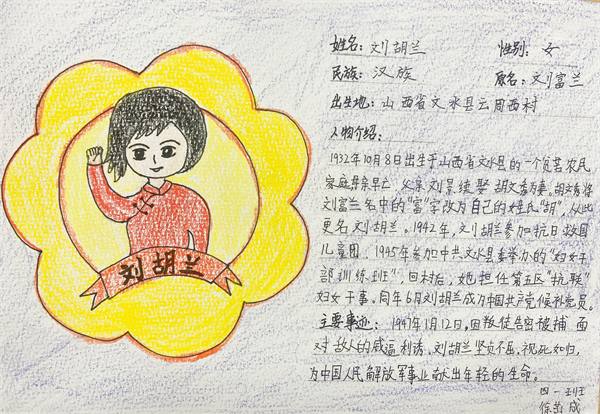 刘胡兰
姓名：刘胡兰 性别：女
民族：汉族 原名：刘富兰
出生地：山西省文水县云周西村
人物介绍：
1932年10月8日出生于山西省文水县的一个贫苦农民
家庭母亲早亡 父亲刘景续娶 胡文秀为妻。胡文秀将
刘富兰名中的"富"字改为自己的姓氏"胡"，从此
更名刘胡兰。1942年，刘胡兰参加抗日救国
儿童团。1945年参加中共文水县委举办的"妇女干
部训练班"，回村后，她担任第五区"抗联"
妇女干事。同年6月刘胡兰成为中国共产党候补党员。
主要事迹：1947年1月12日，因叛徒告密被捕 面
对敌人的威逼利诱，刘胡兰坚贞不屈，视死如归，
为中国人民解放军事业献出年轻的生命。
四一班
徐 成